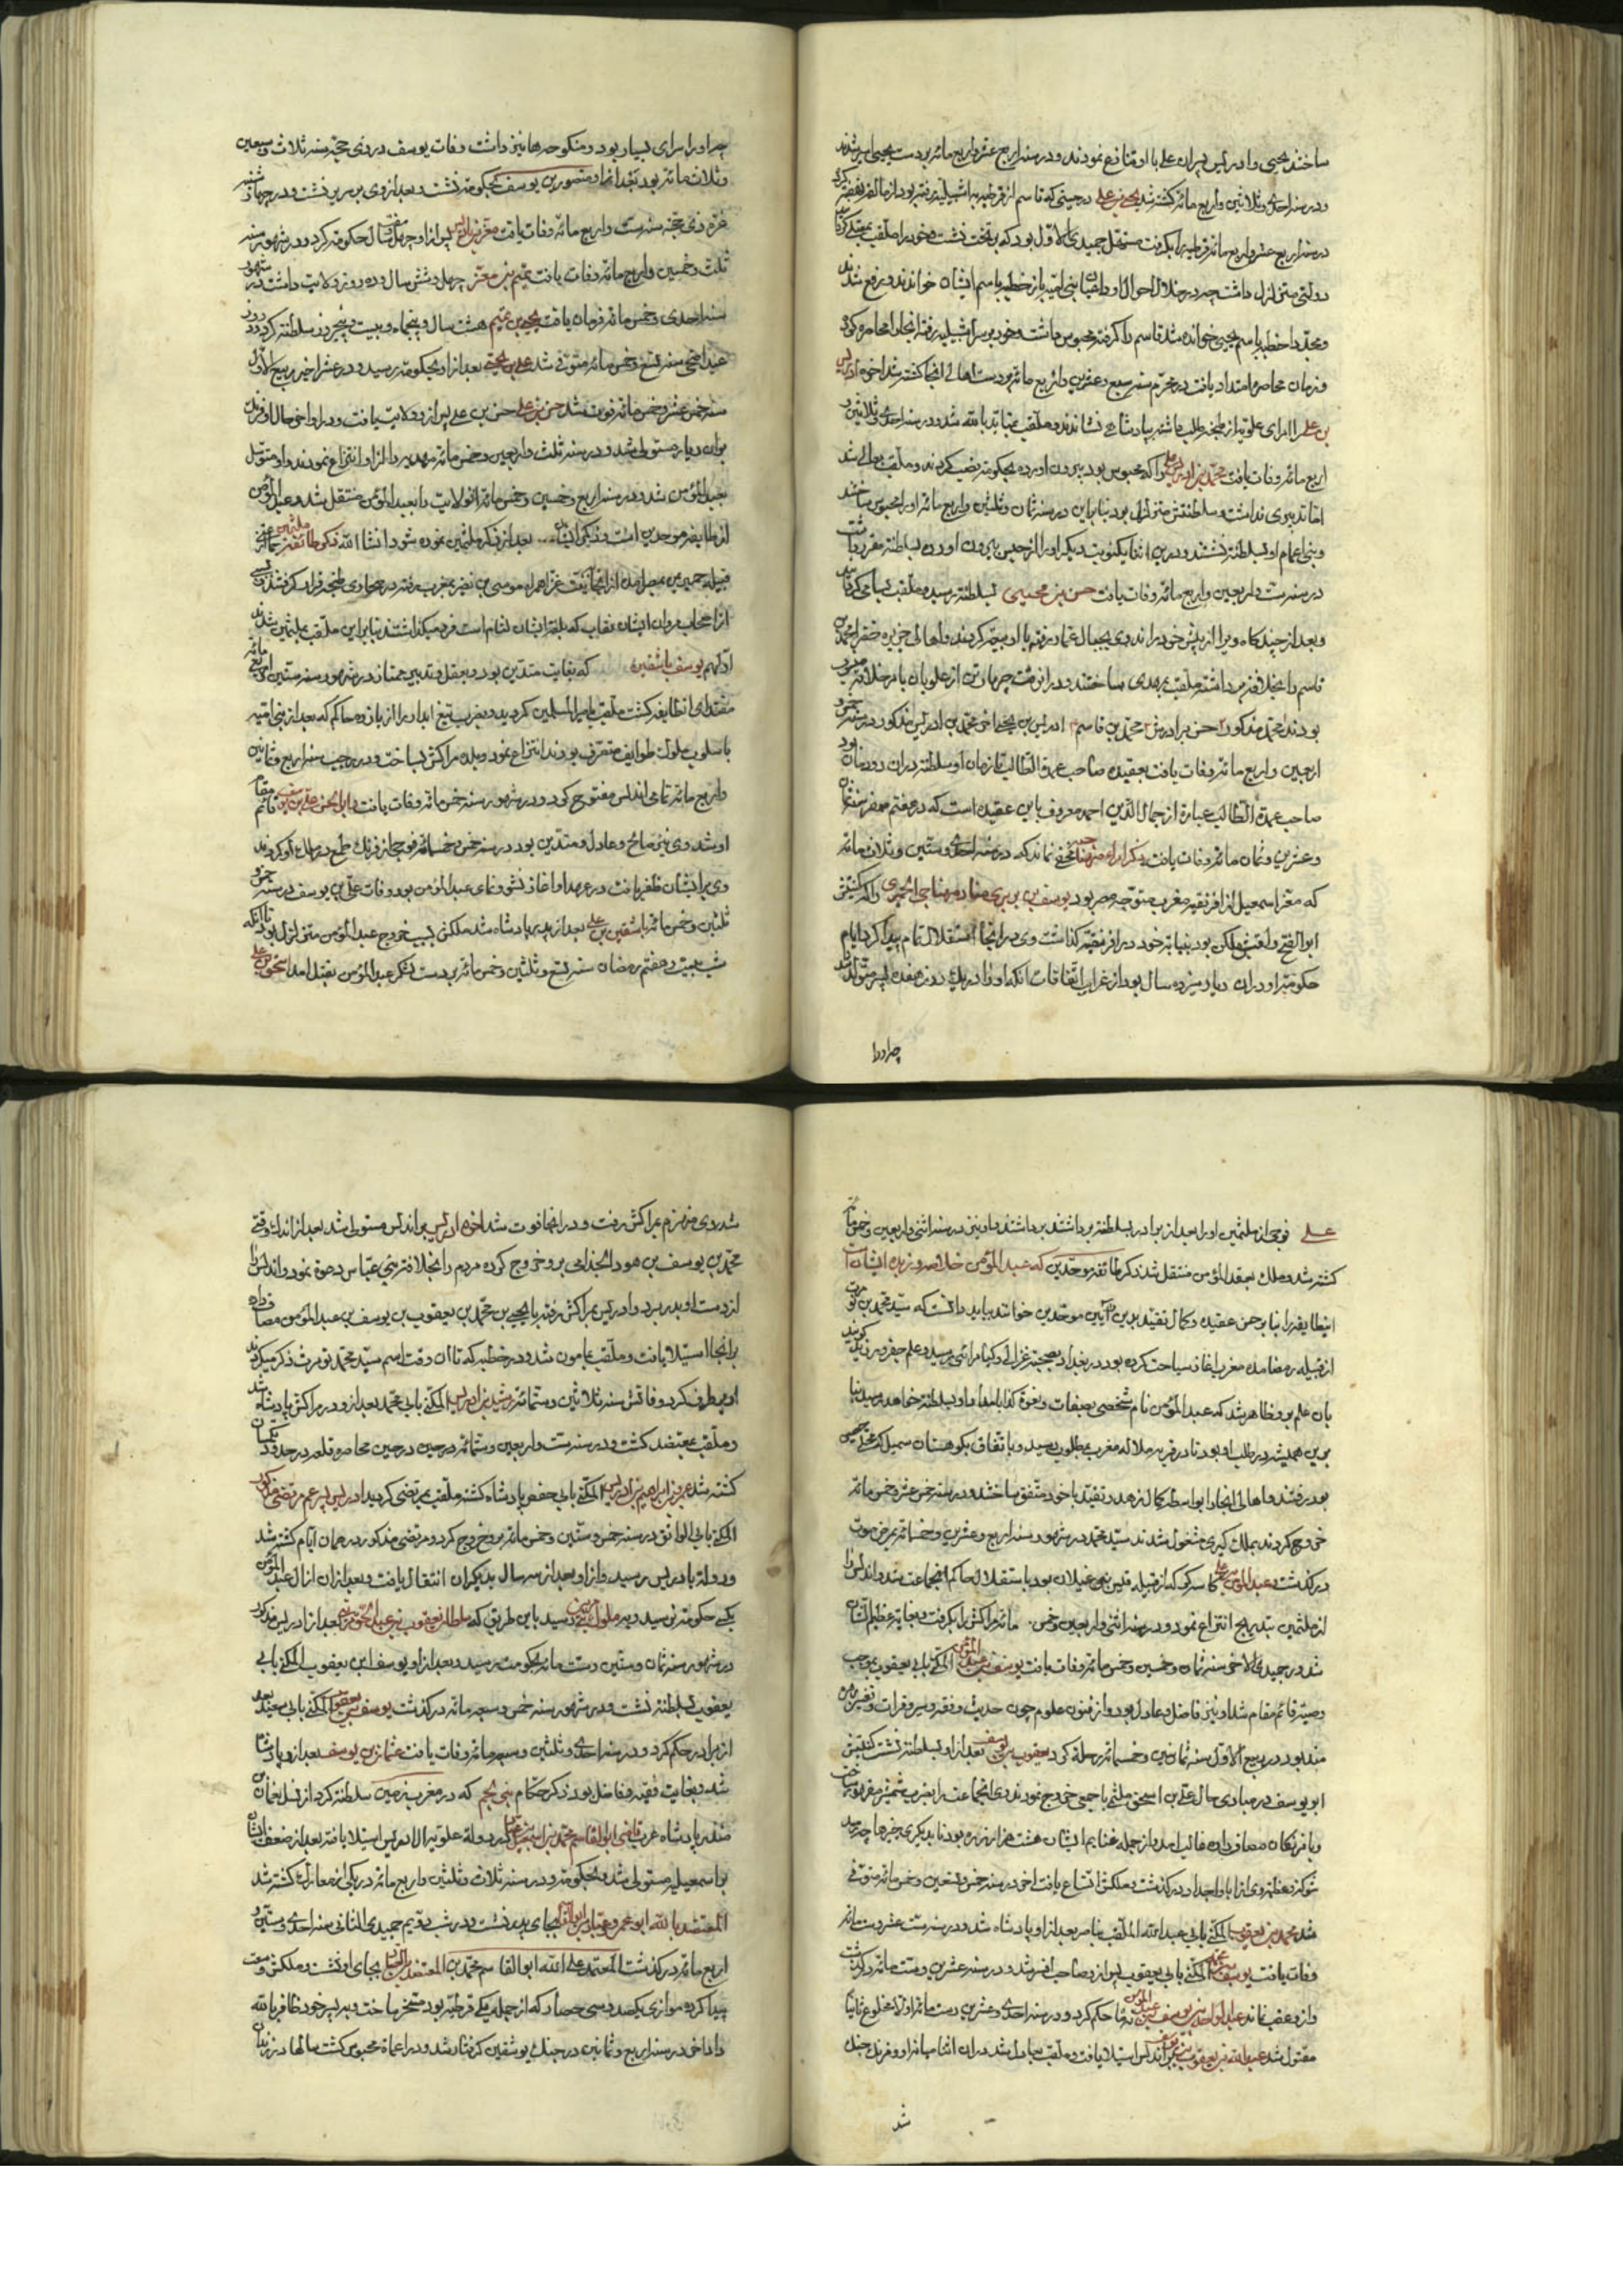 ساختند یحیی و ادریس پسران علی با او منازع نمودند و در سنه اربع عشر و اربع مائه بر دست یحیی اسیر شد
و در سنه احدی و ثلاثین و اربع مائه کشته شد یحیی بن علی در حینی که قاسم از قرطبه به اشبیلیه رفته بود
در سنه اربع عشر و اربع مائه قرطبه را بگرفت جمیدی الاول بود که بر تخت نشست و خود را ملقب
دولتی متزلزل داشت چه در خلال احوال او بنی امیه باز خطبه باسم ایشان خواندند و رفع شد
و مجددا خطبه باسم یحیی خوانده شد قاسم را گرفته محبوس داشت و خود بر سر اشبیلیه رفته آنجا را محاصره کرد
و زمان محاصره امتداد یافت در محرم سنه سبع و عشرین و اربع مائه بر دست اهالی آنجا کشته شد اخوه ادریس
بن علی را امرای علویه از طنجه طلب داشته بپادشاهی نشاندند و ملقب بمتاید بالله شد و در سنه احدی و ثلاثین و
اربع مائه وفات یافت محمد بن ادریس را که محبوس بود بیرون آورده بحکومت نصب کردند و ملقب بعالی شد
اما تدبیری نداشت و سلطنتش متزلزل بود بنابراین در سنه ثمان و ثلثین و اربع مائه او را محبوس ساختند
و بنی اعمام او بسلطنت نشستند و درین اثنا یکنوبت دیگر او را از حبس بیرون آورده بسلطنت مقرر داشت
در سنه ست و اربعین و اربع مائه وفات یافت حسن بن یحیی بسلطنت رسید و ملقب بسامی گردانید
و بعد از چند گاه ویرا از پیش خود راندند وی بجبال غماره رفته با او بیعت کردند و اهالی جزیره خضرا محمد بن
قاسم را بخلافت برداشته ملقب بمهدی ساختند و در آن وقت چهار تن از علویان بامر خلافت
بودند محمد مذکور حسن برادرش محمد بن قاسم ادریس بن یحیی محمد بن ادریس مذکور در سنه
اربعین و اربع مائه وفات یافت بعقیده صاحب عمدة الطالب تا زمان او سلطنت در آن دودمان بود
صاحب عمدة الطالب عبارة از جمال الدین احمد معروف باین عقیده است که در هفتم صفر سنه ثمان
و عشرین و ثمان مائه وفات یافت ذکر امراء صنهاجه مخفی نماند که در سنه احدی و ستین و ثلاث مائه
که معز اسمعیل از افریقیه مغرب متوجه مصر بود یوسف بن زیری بن مناد صنهاجی الحمیری را که کنیتش
ابو الفتح و لقبش بلکین بود بنیابت خود در افریقیه گذاشت وی در آنجا استقلال تمام پیدا کرد ایام
حکومت او در آن دیار سیزده سال بود از غرایب اتفاقات آنکه او را در یک روز هفده پسر متولد شد
چه او را
چه او را سرای بسیار بود و منکوحها نیز داشت وفات یوسف در ذی حجه سنه ثلاث و سبعین
و ثلاث مائه بود بعد از آن منصور بن یوسف بحکومت نشست و بعد از وی پسرش نشست و در
غره ذی حجه سنه ست و اربع مائه وفات یافت معز بن بادیس پس از او چهل سال حکومت کرد و در شهور سنه
ثلث و خمسین و اربع مائه وفات یافت تمیم بن معز چهل و شش سال و ده روز ولایت داشت در شهور
سنه احدی و خمس مائه فرمان یافت یحیی بن تمیم هشت سال و پنجماه و بیست و پنج روز سلطنت کرد در روز
عید اضحی سنه تسع و خمس مائه متوفی شد علی بن یحیی بعد از او بحکومت رسید و در عشر اخیر ربیع الاول
سنه خمس عشر و خمس مائه فوت شد حسن بن علی پس از او ولایت یافت و در اواخر حال او فرنک
بران دیار مستولی شد و در سنه ثلث و اربعین و خمس مائه مهدیه را از او انتزاع نمودند و او متوسل
بعبد المؤمن شد و در سنه اربع و خمسین و خمس مائه آن ولایت بعبد المؤمن منتقل شد و عبد المؤمن
از طایفه موحدین است و ذکر ایشان بعد از ذکر ملثمین نموده شود انشا الله ذکر طائفه ملثمین
قبیله حمیر بمصر آمدند از آنجا همراه موسی بن نصیر بمغرب رفته در صحاری طنجه قرار گرفتند
ایشان نقاب که بلغت ایشان لثام است فرو میگذاشتند بنابراین ملقب بملثمین شدند
اولهم یوسف تاشفین که بغایت متدین بود و بعقل و تدبیر ممتاز در شهور سنه ستین و اربع مائه
مقتدای آن طایفه گشت ملقب بامیر المسلمین گردید و بضرب تیغ آبدار از یازده حاکم که بعد از بنی امیه
باسلوب ملوک طوایف متصرف بودند انتزاع نمود و بلده مراکش بساخت و در رجب سنه اربع و ثمانین
و اربع مائه تمامی اندلس مفتوح کرد و در شهور سنه خمس مائه وفات یافت ابو الحسن علی بن یوسف قائم مقام
او شد وی نیز صالح و عادل و متدین بود در سنه خمس و خمسمائه فوجی از فرنک طمع در ملک او کردند
وی بر ایشان ظفر یافت در عهد او آغاز نشو و نمای عبد المؤمن بود وفات علی بن یوسف در سنه
ثلثین و خمس مائه تاشفین بن علی بعد از پدر پادشاه شد ملکش بسبب خروج عبد المؤمن متزلزل بود تا آنکه
شب بیست و هفتم رمضان سنه تسع و ثلثین و خمس مائه بر دست لشکر عبد المؤمن بقتل آمد اسحق بن علی
علی فوجی از ملثمین او را بعد از برادر بسلطنت برداشتند و او نیز در سنه اثنی و اربعین و خمس مائه
کشته شد و ملک بعبد المؤمن منتقل شد ذکر طائفه موحدین که عبد المؤمن خلاصه و زبده ایشان است
این طایفه را بنا بر حسن عقیده و کمال تقید بدین و آیین موحدین خوانند باید دانست که سید محمد بن تومرت
از قبیله مصامده مغرب آغاز سیاحت کرده بود در بغداد بصحبت غزالی و کیا هراسی رسید و علم جفر ورزید گویند
بآن علم برو ظاهر شد که عبد المؤمن نام شخصی بصفات و نعوت کذا بامداد او بسلطنت خواهد رسید بنا
برین همیشه در طلب او بود تا در قریه ملاله مغرب بمطلوب رسید و باتفاق بکوهستان
بود رفتند و اهالی آنجا را بواسطه کمال زهد و تقید با خود متفق ساختند و در سنه خمس عشر و خمس مائه
خروج کردند بملک گیری مشغول شدند سید محمد در شهور سنه اربع و عشرین و خمسمائه بمرض موت
درگذشت و عبد المؤمن علی کاسه گر که از قبیله قیس بن غیلان بود باستقلال حاکم آن جماعت شد و اندلس را
از ملثمین بتدریج انتزاع نمود و در سنه اثنی و اربعین و خمس مائه مراکش را بگرفت و بغایت عظیم الشان
شد در جمیدی الاخر سنه ثمان و خمسین و خمس مائه وفات یافت یوسف بن عبد المؤمن المکنی بابی یعقوب بموجب
وصیت قائم مقام شد او نیز فاضل و عادل بود و از فنون علوم چون حدیث و فقه و سیر و قرات و تفسیر بهره
مند بود در ربیع الاول سنه ثمانین و خمسمائه رحلت کرد یعقوب بن یوسف بعد از او بسلطنت نشست کنیتش
ابو یوسف در مبادی حال علی بن اسحق ملثم با جمعی خروج نمودند وی آنجماعت را بضرب شمشیر مقهور ساخت
و با فرنکان مصاف داده غالب آمد و از جمله غنایم ایشان هشت هزار زره بود تا بدیگر چیزها چه رسد
شوکت و عظمت وی از آبا و اجداد درگذشت و ملکش اتساع یافت آخر در سنه خمس و تسعین و خمس مائه متوفی
شد محمد بن یعقوب المکنی بابی عبد الله الملقب بناصر بعد از او پادشاه شد و در سنه ست عشر و ست مائه
وفات یافت یوسف بن محمد المکنی بابی یعقوب پس از او صاحب افسر شد و در سنه عشرین و ست مائه درگذشت
و ازو عقب نماند عبد الواحد بن یوسف بن عبد المؤمن نه ماه حکم کرد و در سنه احدی و عشرین و ست مائه اولا مخلوع ثانیا
مقتول شد عبد الله بن یعقوب بن یوسف بر اندلس استیلا یافت و ملقب بعادل شد در آن اثنا میان او و فرنک جنک
شد
شد وی منهزم بمراکش رفت و در آنجا فوت شد اخوه ادریس بر اندلس مستولی شد بعد از اندک وقتی
محمد بن یوسف بن هود الجذامی برو خروج کرده مردم را بخلافت بنی عباس دعوة نمود و اندلس را
از دست او بدر برد و ادریس بمراکش رفته با یحیی بن محمد بن یعقوب بن یوسف بن عبد المؤمن مصاف داد
بر آنجا استیلا یافت و ملقب بمامون شد و در خطبه که تا آن وقت اسم سید محمد تومرت ذکر میکردند
او برطرف کرد وفاتش سنه ثلاثین و ستمائه رشید بن ادریس المکنی بابی محمد بعد از او در مراکش پادشاه شد
و ملقب بمعتضد گشت و در سنه ست و اربعین و ستمائه در حین محاصره قلعه در حدود تلمسان
کشته شد عمر بن ابراهیم بن ادریس المکنی بابی حفص پادشاه گشته ملقب بمرتضی گردید ادریس پسر عم مرتضی مذکور
المکنی بابی الواثق در سنه خمس و ستین و خمس مائه برو خروج کرد و مرتضی مذکور در همان ایام کشته شد
و دولت بادریس رسید و از او بعد از سه سال بدیگران انتقال یافت و بعد از آن از آل عبد المؤمن
یکی بحکومت نرسید و بملوک بنی مرین رسید باین طریق که سلطان یعقوب بن عبد الحق مرینی بعد از ادریس مذکور
در شهور سنه ثمان و ستین و ست مائه بحکومت رسید و بعد از او یوسف ابن یعقوب المکنی بابی
یعقوب بسلطنت نشست و در شهور سنه خمس و سبعه مائه درگذشت یوسف بن یعقوب المکنی بابی سعید بعد
از برادر حکم کرد و در سنه احدی و ثلثین و سبعه مائه وفات یافت عثمان بن یوسف بعد از او پادشاه
شد و بغایت فقیه و فاضل بود ذکر حکام بنی لخم که در مغرب زمین سلطنت کرد از نسل نعمان بن
منذر پادشاه عرب قاضی ابو القاسم محمد بن اسمعیل که در دولت علویه ال ادریس استیلا یافته بعد از ضعف ایشان
بر اسمعیلیه مستولی شد و بحکومت و در سنه ثلاث و ثلثین و اربع مائه در یکی از معارک کشته شد
المعتضد بالله ابو عمرو عباد بن ابو القاسم بجای پدر نشست و در شب دویم جمیدی الثانی سنه احدی و ستین و
اربع مائه درگذشت المعتمد علی الله ابو القاسم محمد بن المعتضد بالله بجای او نشست و ملکش وسعت
پیدا کرده موازی یکصد و سی حصار که از جمله یکی قرطبه بود مسخر ساخت و بپسر خود ظافر بالله
داد آخر در سنه اربع و ثمانین در جنک یوسف تاشفین گرفتار شد و در اغماة محبوس گشت سالها در زندان